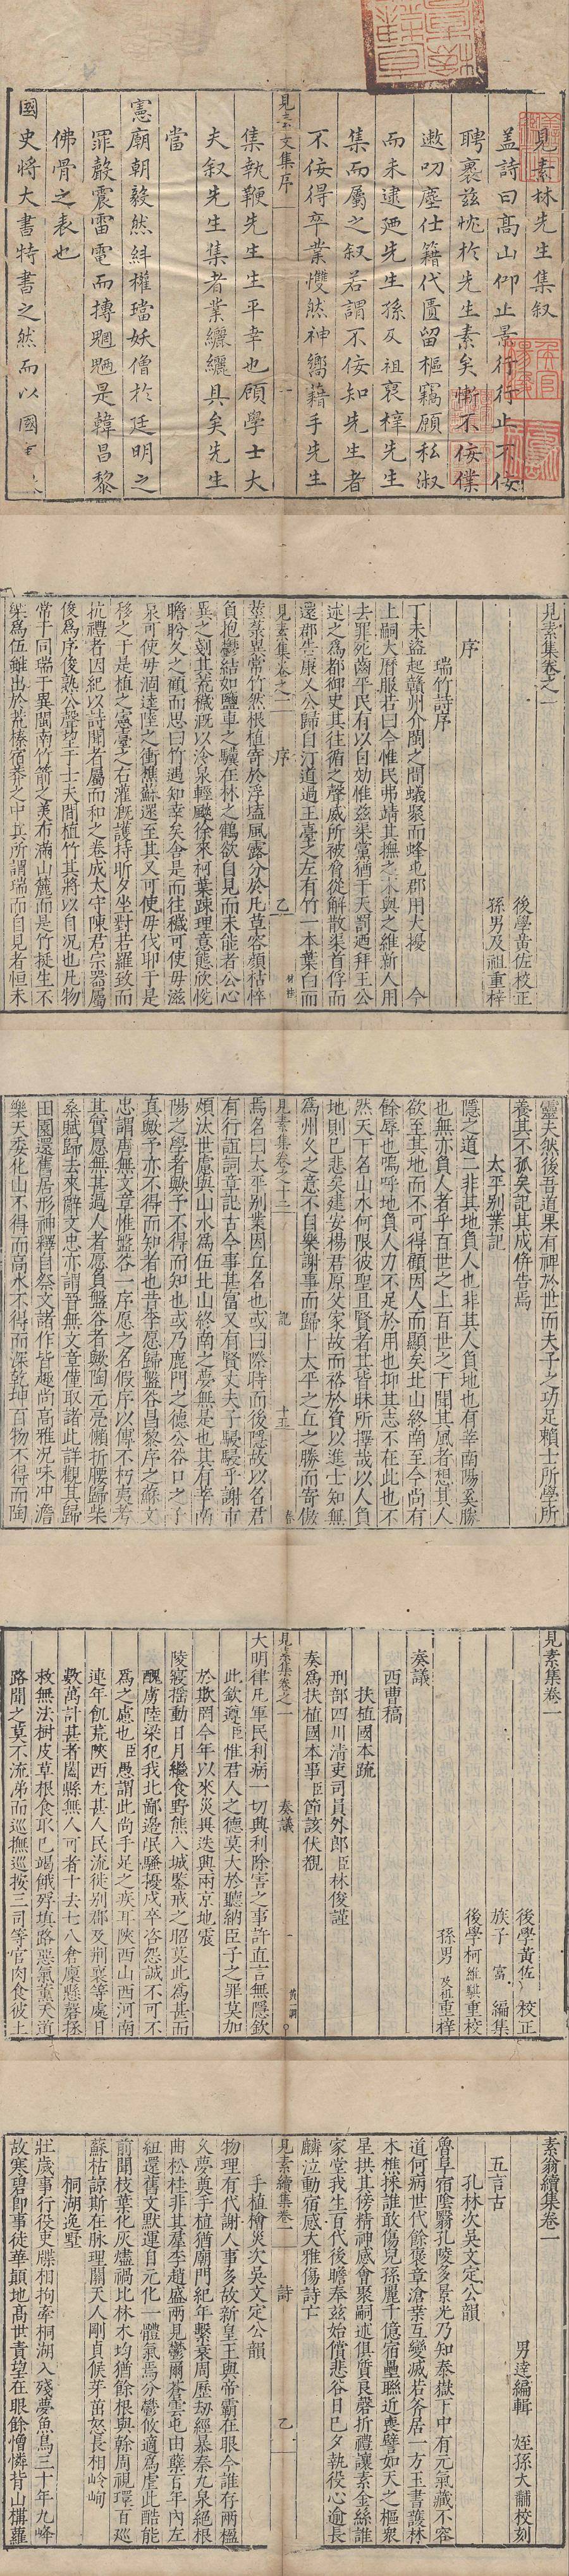 見素林先生集叙
蓋詩曰高山仰止景行行止不佞
聘裹茲忱於先生素矣慚不佞僕
遬叨塵仕籍代匱留樞竊願私淑
而未逮廼先生孫及祖裒梓先生
集而屬之叙若謂不佞知先生者
不佞得卒業㦜然神嚮藉手先生
見素文集序
集執鞭先生生平幸也顧學士大
夫叙先生集者業纚纚具矣先生
當
憲廟朝毅然糾權璫妖僧於廷明之
罪殷震雷霆而摶魍魎是韓昌黎
佛骨之表也
國史將大書特書之然而以國
見素集卷之一
後學黃佐校正
孫男及祖重梓
序
瑞竹詩序
丁未盜起贛州介閩之間蟻聚而蜂屯郡用大擾 今
上嗣大曆服若曰今惟民弗靖其撫之 與之維新人用
去罪死齒平民有以自効惟茲渠黨猶干天罰廼拜王公
述之爲都御史其往循之聲威所被脅從解散渠首俘而
還郡告康乂公歸自汀道過王臺之左有竹一本葉白而
見素集卷之一 序 乙
莖綠異常竹然根植寄於浮墻風露分於凡草容顏枯悴
負抱鬱結如鹽車之驥在林之鶴欲自見而未能者公心
異之剔其荒穢溉以冷泉輕颸徐來柯葉踈理意態欣悅
瞻盼久之顧而思曰竹遇知幸矣舍是而往穢可使毋滋
泉可使毋涸達陸之衝樵蘇還至其又可使毋伐耶于是
移之于是植之憲臺之右灌溉護持昕夕坐對若羅致而
抗禮者因紀以詩聞者屬而和之卷成太守陳君宗器屬
俊爲序俊熟公聲望于士大夫間植竹其將以自况也凡物
常于同瑞于異閩南竹箭之美布滿山麓而是竹挺生不
榘爲伍雖出於荒榛宿莽之中其所謂瑞而自見者恒未
靈夫然後吾道果有裨於世而夫子之功足賴士所學所
養其不孤矣記其成併告焉
太平別業記
隱之道二非其地負人也非其人負地也有幸南陽奚勝
也無亦負人者乎百世之上百世之下聞其風者想其人
欲至其地而不可得顧因人而顯矣北山終南至今尚有
餘辱也嗚呼地負人力不足於用也抑其志不在此也不
然天下名山水何限彼聖且賢者其皆昧所擇哉以人負
地則已悲矣建安楊君原父家故而裕於資以進士知無
爲州久之意不自樂謝事而歸卜太平之丘之勝而寄傲
見素集卷之十三 記 十五
焉名曰太平別業因丘名也或曰際時而後隱故以名君
有行誼詞章記古今事甚富又有賢丈夫子駸駸乎謝市
煩汰世慮與山水爲伍北山終南之夢無是也其有幸南
陽之學者歟予不得而知也或乃鹿門之德公谷口之子
真歟予亦不得而知者也昔李愿歸盤谷昌黎序之蘇文
忠謂唐無文章惟盤谷一序愿之名假序以傳不朽夷考
其實愿無甚過人者愿負盤谷者歟陶元亮懶折腰歸柴
桑賦歸去來辭文忠亦謂晉無文章僅取諸此詳觀其歸
田園還舊居形神釋自祭文諸作皆趣尚高雅况味冲澹
樂天委化山不得而高水不得而深乾坤百物不得而陶
見素集卷一
後學黃佐 校正
族子 富 編集
後學柯維騏重校
孫男 及祖重梓
奏議
西曹稿
扶植國本疏
刑部四川清吏司員外郎臣林俊謹
奏爲扶植國本事臣節該伏覩
見素集卷之一 奏議 一
大明律凡軍民利病一切興利除害之事許直言無隱欽
此欽遵臣惟君人之德莫大於聽納臣子之罪莫加
於欺罔今年以來災異迭興兩京地震
陵寢搖動日月繼食野熊入城鑒戒之昭莫此爲甚而
醜虜陸梁犯我北鄙邊氓騷擾戍卒咨怨誠不可不
爲之慮也臣愚謂此尚手足之疾耳陝西山西河南
連年飢荒陝西尤甚人民流徙別郡及荊襄等處日
數萬計甚者闔縣無人可者十去七八倉廩縣罄拯
救無法樹皮草根食取已竭餓殍填路惡氣薰天道
路聞之莫不流涕而巡撫巡按三司等官肉食彼土
素翁續集卷一
男達編輯 姪孫大黼校刻
五言古
孔林次吳文定公韻
魯阜宿陰翳孔陵多景光乃知泰嶽下中有元氣藏不容
道何病世代餘褒章滄桑互變滅若斧居一方玉書護林
木樵採誰敢傷兒孫麗千億宿壘聯近喪譬如天之樞衆
星拱其傍精神感會聚嗣述俱質良磬折禮讓素金絲誰
家堂我生百代後瞻奉茲始償悲谷日已夕執役心逾長
麟泣動宿感大雅傷詩亡
見素續集卷一 詩 乙
手植檜災次吳文定公韻
物理有代謝人事多故新皇王與帝霸在眼今誰行兩楹
久夢奠手植猶廟門紀年繫衰周歷刼經暴秦九泉絕根
曲松桂非其羣李趙盛兩見鬱爾蒼雲屯由孽百年內左
紐還舊文默運自元化一體氣焉分鬱攸適爲虐此酷能
前聞枝葉化灰燼禍比林木均猶餘根與榦周視環百巡
蘇枯諒斯在脉理關天人剛貞候芽茁怒長相岭峋
桐湖逸墅
壯歲事行役吏牒相拘牽桐湖入殘夢魚鳥三十年九峰
故寒碧卽事徒華顛地高世責望在眼餘憎憐背山構蘿